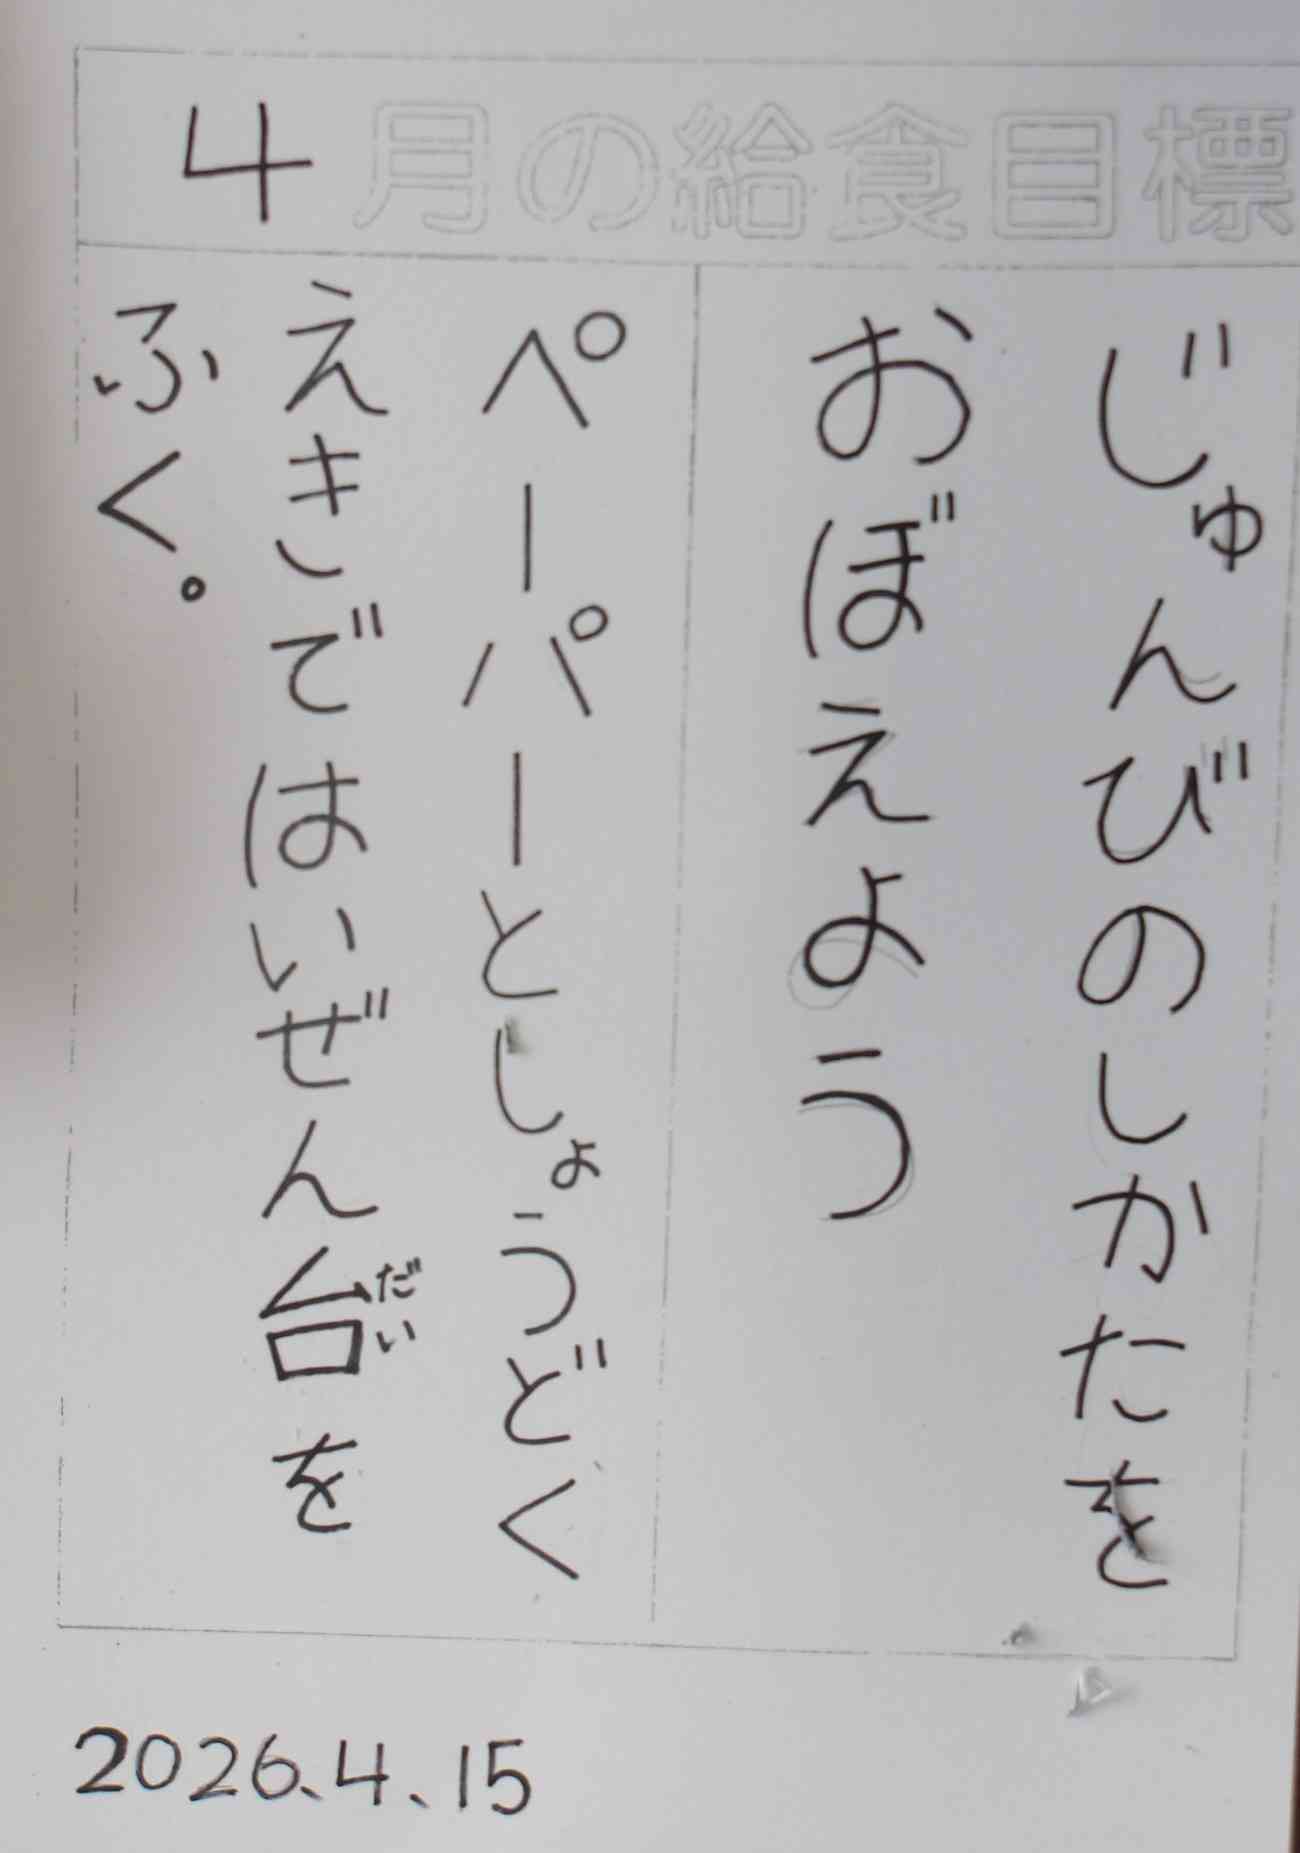 4月の給食目標
じゅんびのしかたを
おぼえよう
ペーパーとしょうどく
えきではいぜん台を
だい
ふく。
2026.4.15